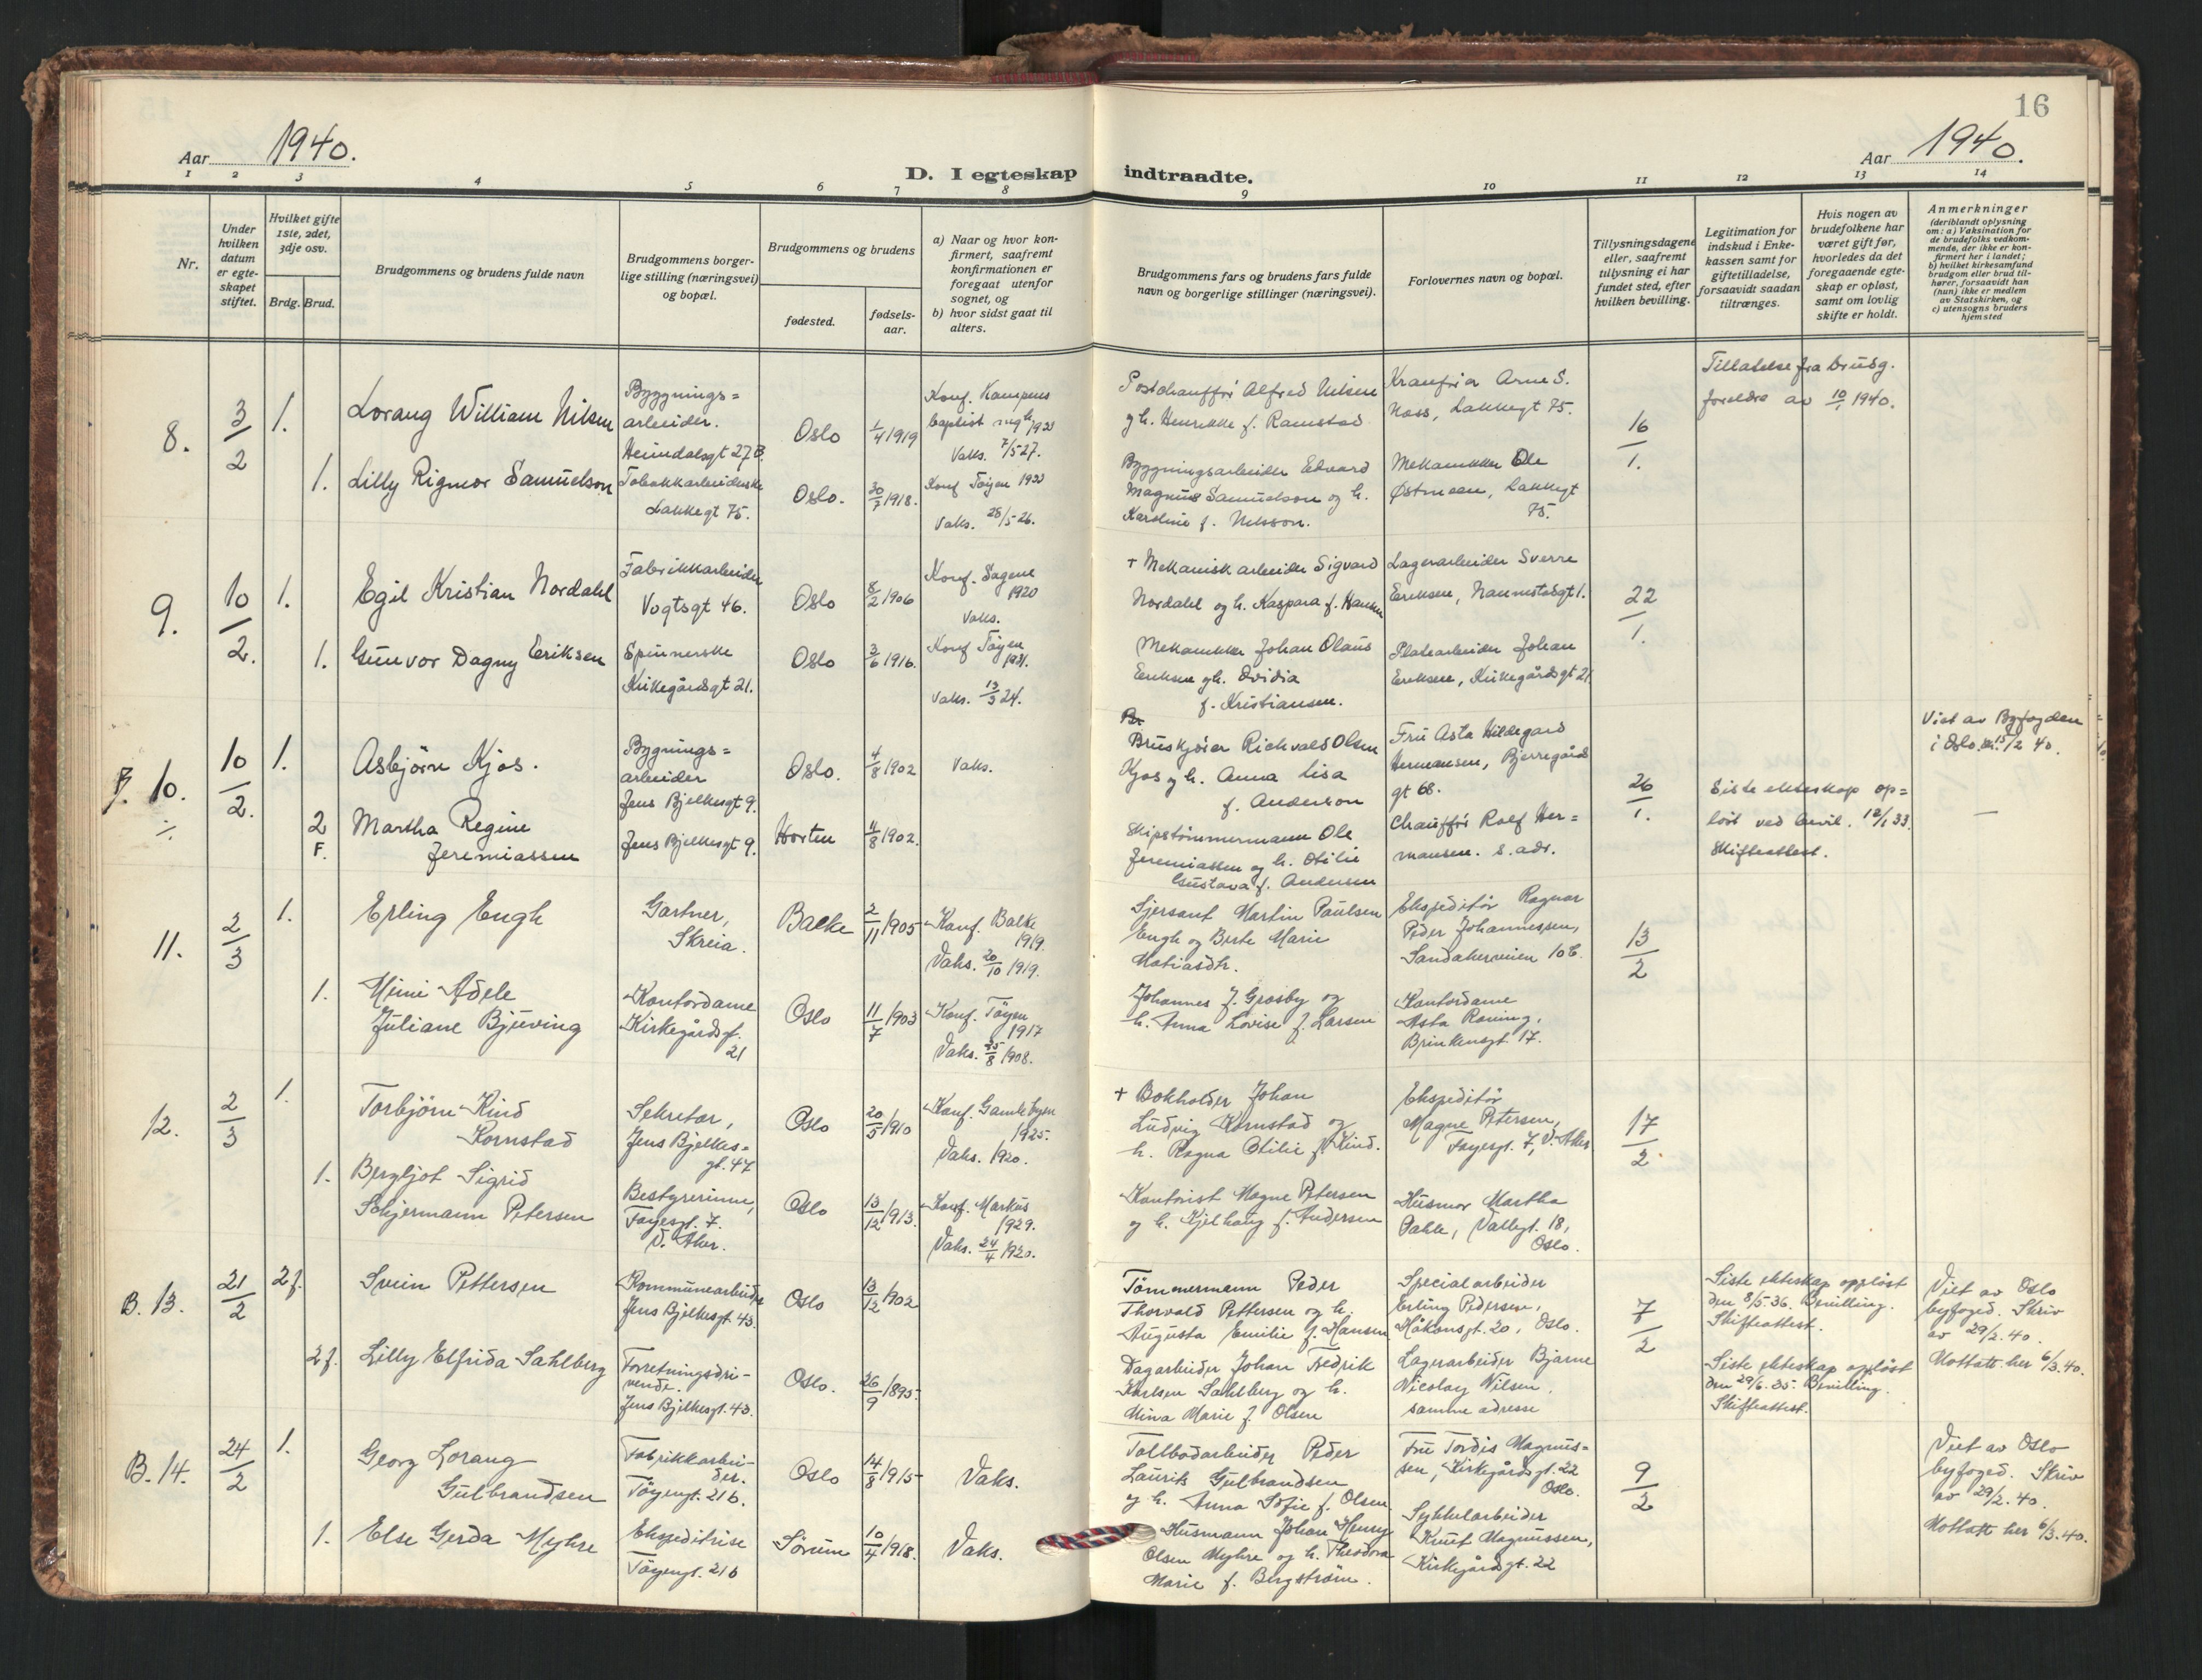 16
Aar 1940.
Aar 1940.
D. I egteskap indtraadte.
1 2 3 4 5 6 7 8 9 10 11 12 13 14
Nr.
Under hvilken datum er egteskapet stiftet.
Hvilket gifte 1ste, 2det, 3dje osv.
Brdg. Brud.
Brudgommens og brudens fulde navn
Brudgommens borgerlige stilling (næringsvei) og bopæl.
Brudgommens og brudens
fødested.
fødselsaar.
a) Naar og hvor konfirmert, saafremt konfirmationen er foregaat utenfor sognet, og
b) hvor sidst gaat til alters.
Brudgommens fars og brudens fars fulde navn og borgerlige stillinger (næringsvei).
Forlovernes navn og bopæl.
Tillysningsdagene eller, saafremt tillysning ei har fundet sted, efter hvilken bevilling.
Legitimation for indskud i Enkekassen samt for giftetilladelse, forsaavidt saadan tiltrænges.
Hvis nogen av brudefolkene har været gift før, hvorledes da det foregaaende egteskap er opløst, samt om lovlig skifte er holdt.
Anmerkninger
(deriblandt oplysning om: a) Vaksination for de brudefolks vedkommende, der ikke er konfirmert her i landet;
b) hvilket kirkesamfund brudgom eller brud tilhører, forsaavidt han (hun) ikke er medlem av Statskirken, og
c) utensogns bruders hjemsted
8. 3/2 1. Lorang William Nilsen
Bygnings=
arbeider.
Heimdalsgt 27B.
Oslo 1/4 1919
Konf. Kampens
baptist
Vaks. 7/5 27.
Postchauffør Alfred Nilsen
og h. Henrikke f. Ramstad
Kranfører Arne S.
Noss, Lakkegt 75.
16/1.
Tillatelse fra brudg.
foreldre av 10/1 1940.
1. Lilly Rigmor Samuelson
Tobakkarbeiderske
Lakkegt 75.
Oslo. 30/7 1918.
Konf Tøyen 1933
Vaks. 28/5 26.
Bygningsarbeider Edvard
Magnus Samuelson og h.
Karoline f. Nilsson.
Mekanikker Ole
Østmoen, Lakkegt
75.
9. 10/2. 1. Egil Kristian Nordahl
Fabrikkarbeider
Vogtsgt 46.
Oslo 8/2 1906
Konf. Sagene
1920
Vaks.
+ Mekanisk arbeider Sigvard
Nordahl og h. Kaspara f. Hansen
Lagerarbeider Sverre
Eriksen, Nannestadgt 1.
22/1.
1. Gunvor Dagny Eriksen
Spinnerske
Kirkegårdsgt 21.
Oslo 3/6 1916.
Konf Tøyen
1931.
Vaks. 13/3 24.
Mekanikker Johan Olaus
Eriksen og h. Ovidia
f. Kristiansen.
Platearbeider Johan
Eriksen, Kirkegårdsgt 21.
B. 10. 10/2. 1. Asbjørn Kjos.
Bygnings=
arbeider
Jens Bjelkesgt 9.
Oslo. 4/8 1902
Vaks.
Br.
Bruskjører Richvald Olsen
Kjos og h. Anna Lisa
f. Anderson
Fru Asta Hildegard
Hermansen, Bjerregårds
gt 68.
26/1.
Viet av Byfogden
i Oslo. 15/2 40.
2 F. Martha Regine
Jeremiassen
Jens Bjelkesgt 9.
Horten 4/8 1902.
Skipstømmermann Ole
Jeremiassen og h. Otilie
Gustava f. Andersen
Chauffør Rolf Her=
mansen. s. adr.
Siste ekteskap op=
løst ved bevil. 12/1 33.
Skifteattest.
—
11. 2/3 1. Erling Engh
Gartner,
Skreia.
Balke 2/11 1905
Konf. Balke
1919.
Vaks. 20/10 1919.
Sjersant Martin Paulsen
Engh og Berte Marie
Matiasdtr.
Ekspeditør Ragnar
Peder Johannessen,
Sandakerveien 10 b.
13/2
1. Mimi Adele
Juliane Bjuving
Kontordame
Kirkegårdsgt.
21
Oslo 11/7 1903
Konf. Tøyen
1917
Vaks. 25/8 1908.
Johannes f. Grosby og
h. Anna Lovise f. Larsen
Kontordame
Asta Roning,
Brinkensgt. 17.
12. 2/3 1. Torbjørn Kind
Kornstad
Sekretær,
Jens Bjelkes=
gt. 47
Oslo 20/5 1910
Konf. Gamlebyen
1925.
Vaks. 1920.
+ Bokholder Johan
Ludvig Kornstad og
h. Ragna Otilie f. Kind.
Ekspeditør
Magne Petersen,
Fayesgt. 7, V. Aker
17/2
1. Bergljot Sigrid
Schjermann Petersen
Bestyrerinne,
Fayesgt. 7.
V. Aker.
Oslo 13/12 1913.
Konf. Markus
1929.
Vaks. 24/4 1920.
Kontorist Magne Petersen
og h. Kjelhaug f. Andersen
Husmor Martha
Dahle, Vallegt. 18,
Oslo.
B. 13. 21/2 2 f. Svein Pettersen
Kommunearbeider
Jens Bjelkesgt. 43.
Oslo 13/12 1902
Tømmermann Peder
Thorvald Pettersen og h.
Augusta Emilie f. Hansen
Specialarbeider
Erling Pedersen,
Håkonsgt. 20, Oslo.
7/2
Siste ekteskap oppløst
den 8/5.36. Bevilling.
Skifteattest.
Viet av Oslo
byfoged. Skriv
av 29/2. 40.
Mottatt her 6/3. 40.
2 f. Lilly Elfrida Sahlberg
Forretningsdri-
vende.
Jens Bjelkesgt. 43.
Oslo. 26/9 1895
Dagarbeider Johan Fredrik
Karlsen Sahlberg og h.
Mina Marie f. Olsen
Lagerarbeider Bjarne
Nicolay Nilsen.
samme adresse
Siste ekteskap oppløst
den 29/6. 35. Bevilling.
Skifteattest.
B. 14. 24/2 1. Georg Lorang
Gulbrandsen
Fabrikkarbei-
der.
Tøyengt. 21 b.
Oslo 14/8 1915
Vaks.
Tollbodarbeider Peder
Laurits Gulbrandsen
og h. Anna Sofie f. Olsen
Fru Tordis Magnus=
sen, Kirkegårdsgt. 22
Oslo.
9/2
Viet av Oslo
byfoged. Skriv
av 29/2. 40.
Mottatt her 6/3. 40.
1. Else Gerda Myhre
Ekspeditrise
Tøyengt. 21 b
Sørum 10/4 1918.
Vaks.
Husmann Johan Henry
Olsen Myhre og h. Theodora
Marie f. Bergstrøm.
Sykkelarbeider
Knut Magnussen,
Kirkegårdsgt. 22